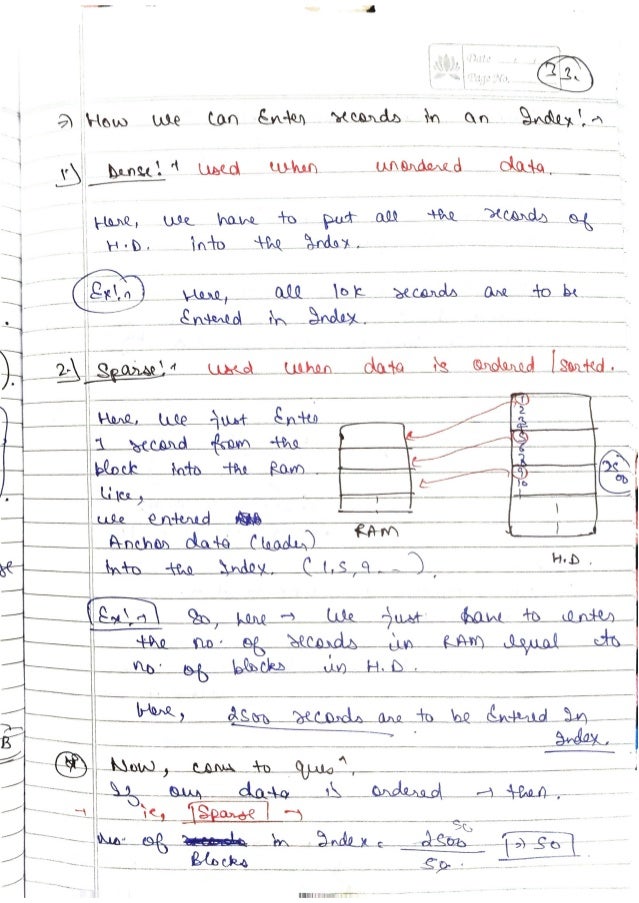 Date
Page No.
33.
=> How we can Enter records in an Index:→
1.) Dense:→ used when unordered data.
Here, we have to put all the records of
H.D. into the Index.
Ex:→ Here, all 10k records are to be
Entered in Index.
2.) Sparse:→ used when data is ordered / sorted.
Here, we just Enter
1 record from the
block into the Ram.
like,
we entered
Anchor data (leader)
into the Index. (1,5,9...).
RAM
1
2
3
4
5
6
7
8
9
10
2500
H.D.
Ex:→ So, here → we just have to enter
the no. of records in RAM equal to
no. of blocks in H.D.
Here, 2500 records are to be Entered In
Index.
B
Now, come to quesn.
If our data is ordered → then.
→ ie, Sparse →
no. of Blocks in Index = 2500/50 => 50
50